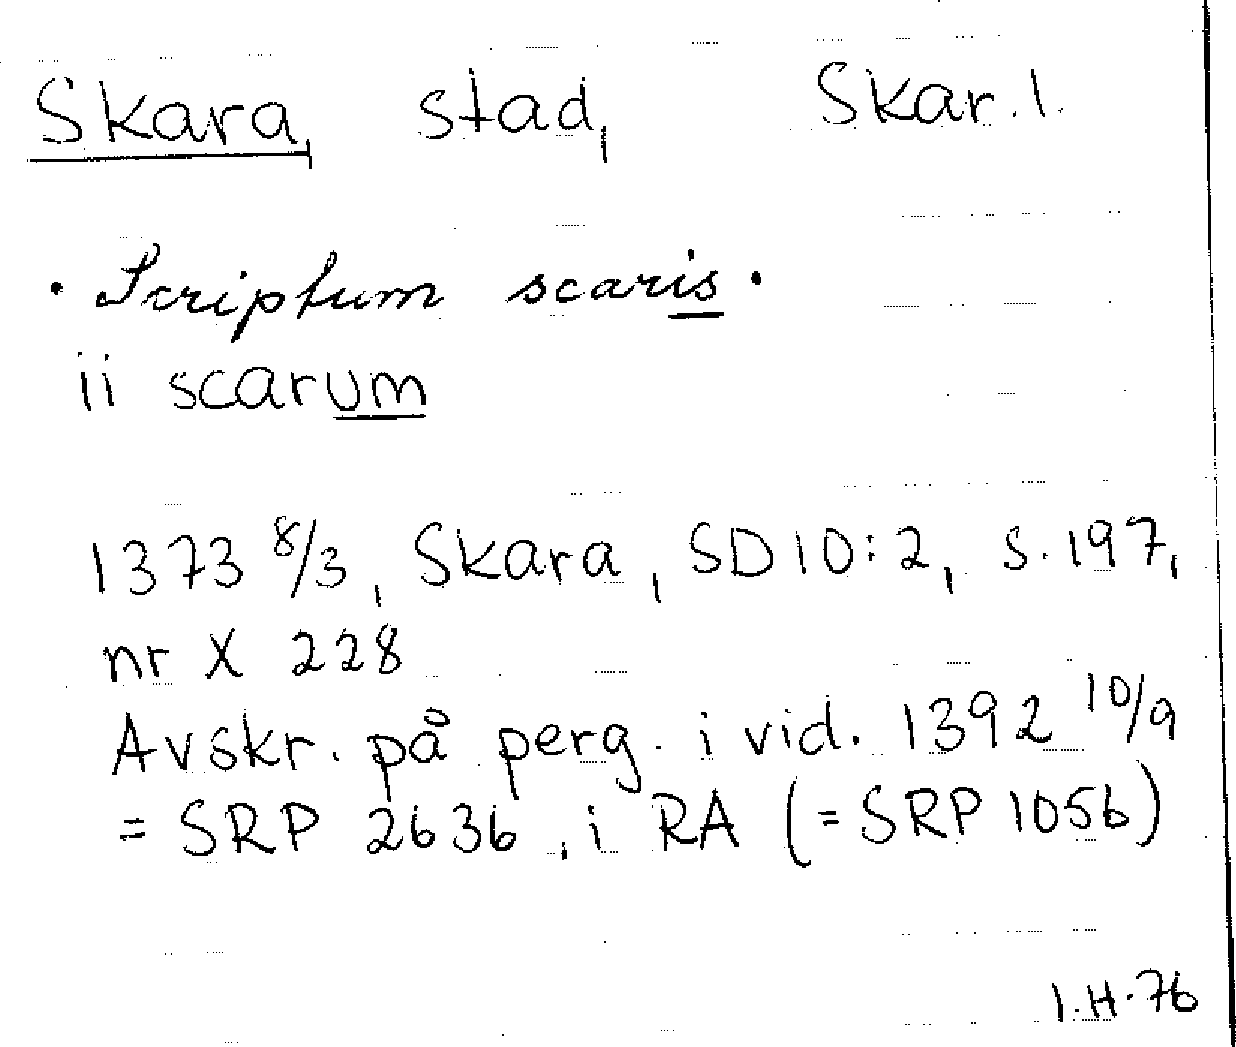 Skara, stad, Skar. l.
· Scriptum scaris ·
ii scarum
1373 8/3, Skara, SD 10:2, s. 197,
nr X 228
Avskr. på perg. i vid. 1392 10/9
= SRP 2636, i RA (= SRP 1056)
I.H. 76